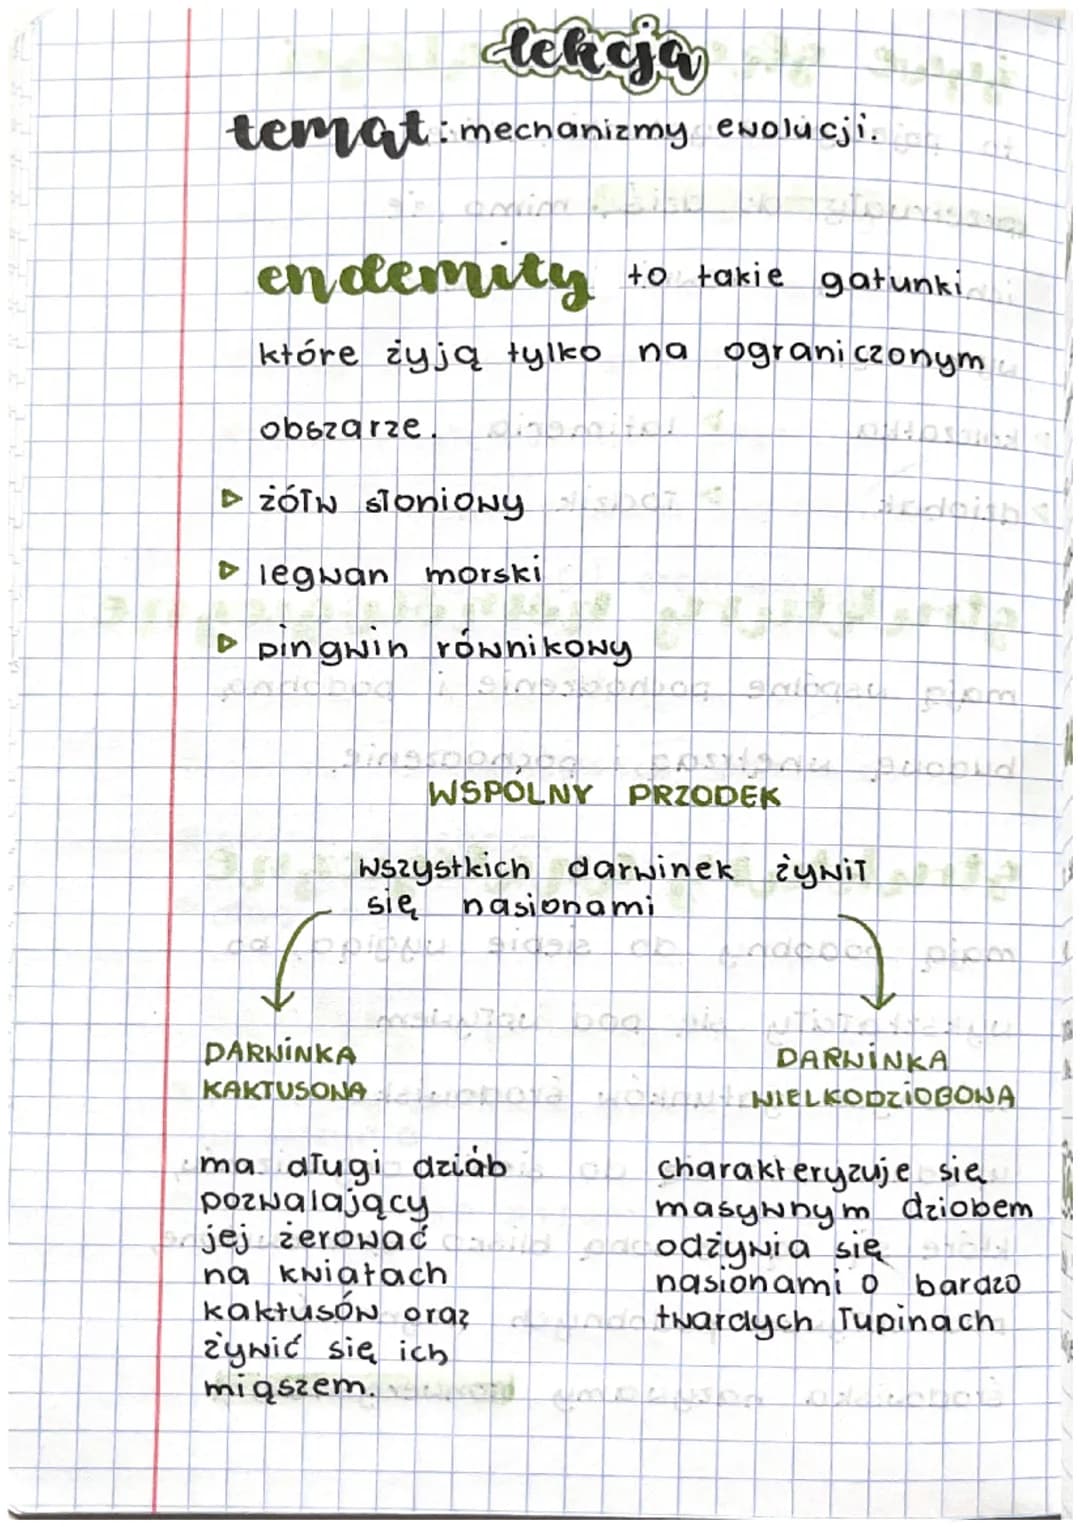 lekcja
temat: mechanizmy ewolucji.
endemity to takie gatunki
które żyją tylko na ograniczonym
obszarze.
▷ żółw słoniowy
▷ legwan morski
▷ pingwin równikowy
WSPÓLNY PRZODEK
wszystkich darwinek żywił
się nasionami
DARWINKA
KAKTUSOWA
DARWINKA
WIELKODZIOBOWA
ma długi dziób
pozwalający
jej żerować
na kwiatach
kaktusów oraz
żywić się ich
miąszem.
charakteryzuje się
masywnym dziobem
odżywia się
nasionami o bardzo
twardych łupinach